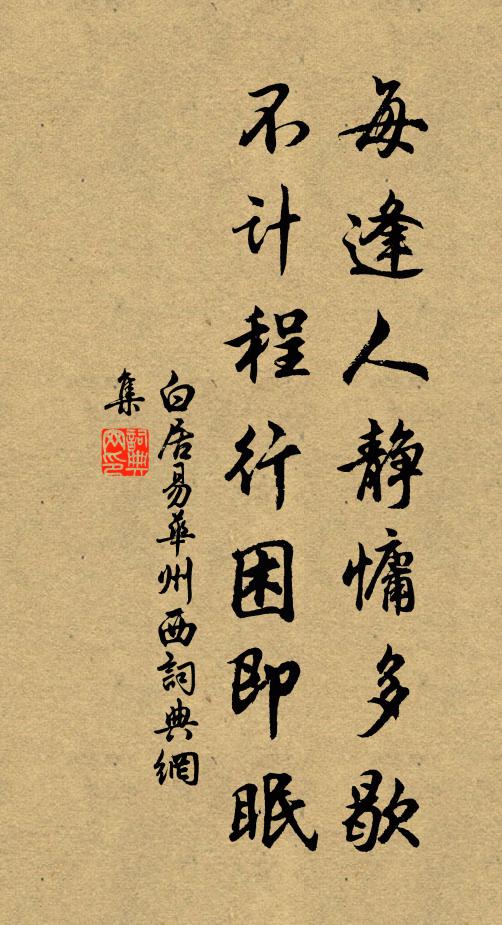 每逢人静慵多歇
不计程行困即眠
白居易華州西詞典網
集
詞典
网印